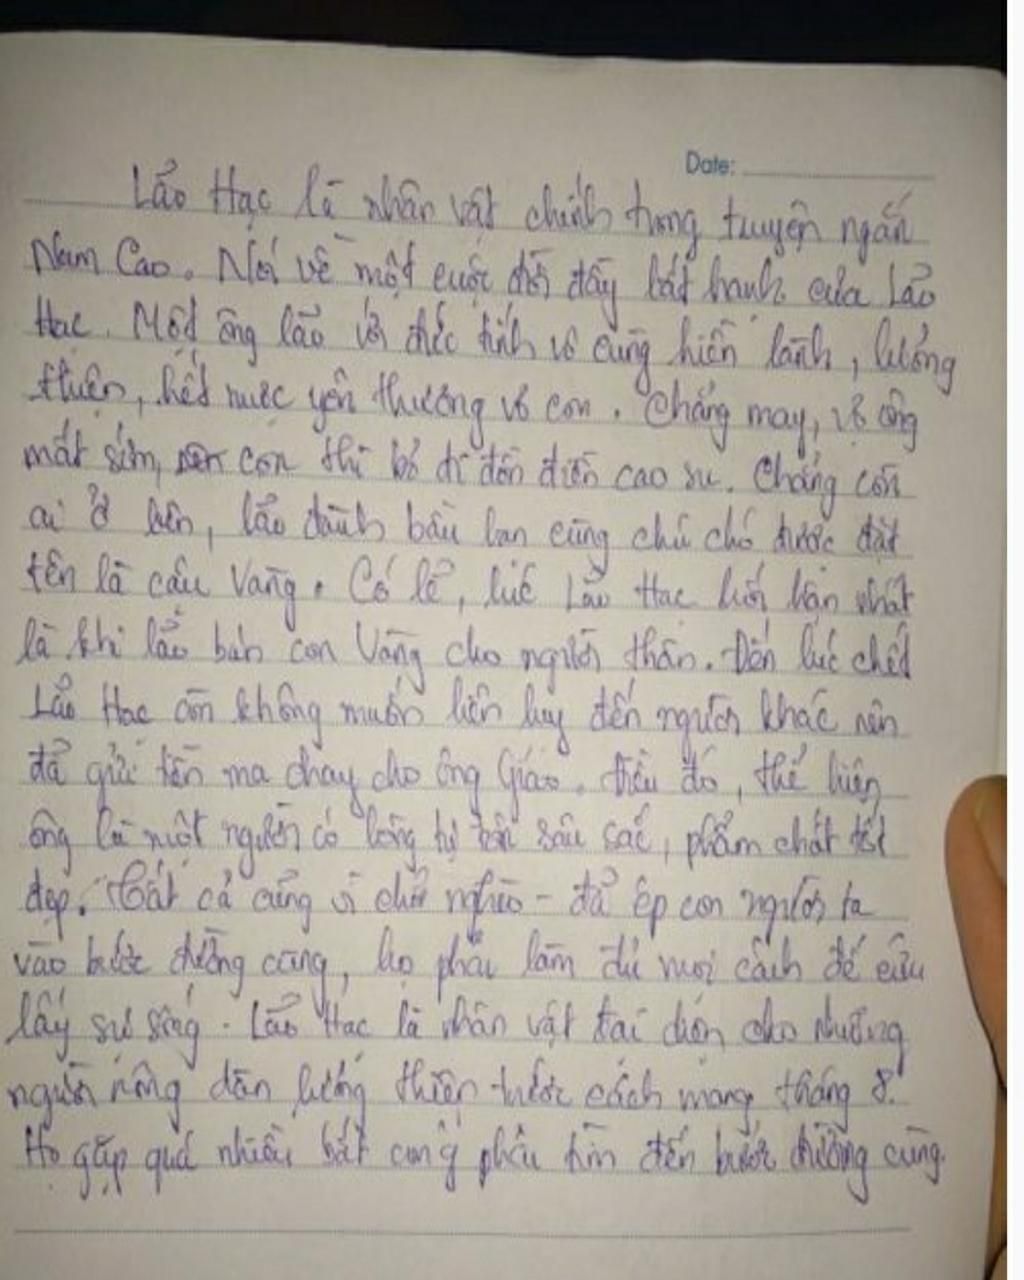 Date:
Lão Hạc là nhân vật chính trong truyện ngắn
Nam Cao. Nói về một cuộc đời đầy bất hạnh của Lão
Hạc. Một ông lão với đức tính vô cùng hiền lành, lương
thiện, hết mực yêu thương vợ con. Chẳng may, vợ ông
mất sớm, con thì bỏ đi đồn điền cao su. Chẳng còn
ai ở bên, lão đành bầu bạn cùng chú chó được đặt
tên là cậu Vàng. Có lẽ, lúc Lão Hạc hối hận nhất
là khi lão bán con Vàng cho người thân. Đến lúc chết
Lão Hạc còn không muốn liên lụy đến người khác nên
đã gửi tiền ma chay cho ông Giáo. Điều đó, thể hiện
ông là một người có lòng tự trọng sâu sắc, phẩm chất tốt
đẹp. Tất cả cũng vì chữ nghèo - đã ép con người ta
vào bước đường cùng, họ phải làm đủ mọi cách để cứu
lấy sự sống. Lão Hạc là nhân vật đại diện cho những
người nông dân lương thiện trước cách mạng tháng 8.
Họ gặp quá nhiều bất công phải tìm đến bước đường cùng.